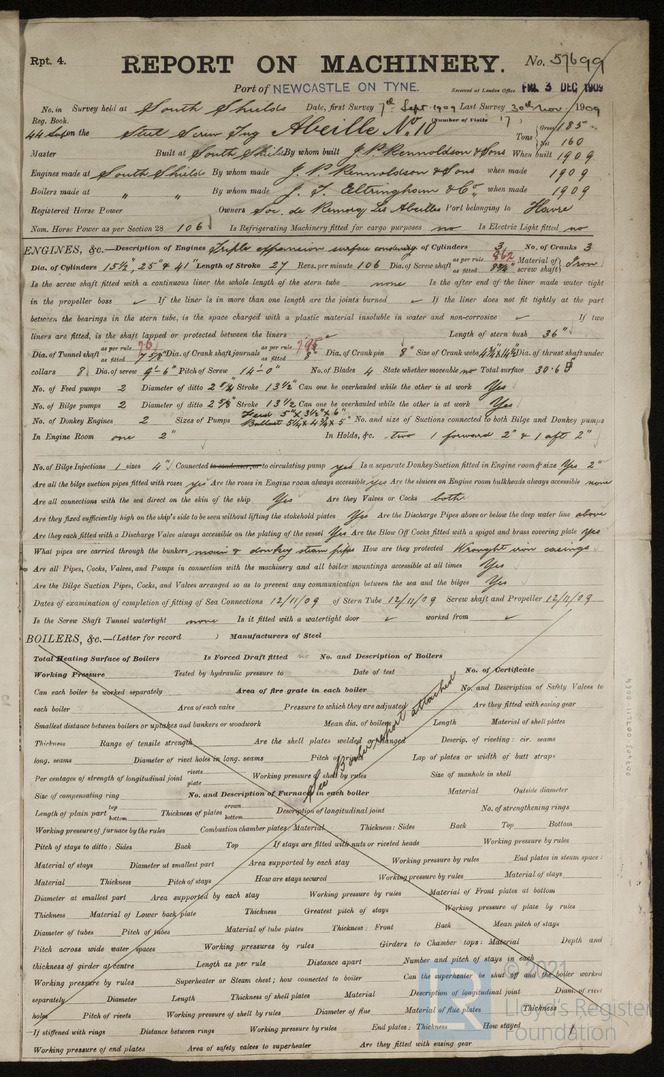 Rpt. 4. REPORT ON MACHINERY. No. 57699
Port of NEWCASTLE ON TYNE. Received at London Office FRI. 3 DEC 1909
No. in Survey held at South Shields Date, first Survey 7th Sept 1909 Last Survey 30th Nov. 1909
Reg. Book. (Number of Visits 17)
on the Steel Screw Tug Abeille No. 10 Tons Gross 185 Net 160
Master Built at South Shields By whom built J. P. Rennoldson & Sons When built 1909
Engines made at South Shields By whom made J. P. Rennoldson & Sons when made 1909
Boilers made at " " By whom made J. T. Eltringham & Co. when made 1909
Registered Horse Power Owners Soc. de Remorq Les Abeilles Port belonging to Havre
Nom. Horse Power as per Section 28 106 Is Refrigerating Machinery fitted for cargo purposes no Is Electric Light fitted no
ENGINES, &c.—Description of Engines Triple expansion surface condensing No. of Cylinders 3 No. of Cranks 3
Dia. of Cylinders 15½", 25" & 41" Length of Stroke 27 Revs. per minute 106 Dia. of Screw shaft as per rule as fitted Material of screw shaft Iron
Is the screw shaft fitted with a continuous liner the whole length of the stern tube none Is the after end of the liner made water tight
in the propeller boss If the liner is in more than one length are the joints burned If the liner does not fit tightly at the part
between the bearings in the stern tube, is the space charged with a plastic material insoluble in water and non-corrosive If two
liners are fitted, is the shaft lapped or protected between the liners Length of stern bush 36"
Dia. of Tunnel shaft as per rule as fitted 7⅝" Dia. of Crank shaft journals as per rule 7.95 as fitted 8" Dia. of Crank pin 8" Size of Crank webs Dia. of thrust shaft under
collars 8" Dia. of screw 9'-6" Pitch of Screw 14'-0" No. of Blades 4 State whether moveable no Total surface 30.6
No. of Feed pumps 2 Diameter of ditto Stroke 13½" Can one be overhauled while the other is at work Yes
No. of Bilge pumps 2 Diameter of ditto Stroke 13½ Can one be overhauled while the other is at work Yes
No. of Donkey Engines 2 Sizes of Pumps Feed 5" x 3½" x 6" Ballast No. and size of Suctions connected to both Bilge and Donkey pumps
In Engine Room one 2" In Holds, &c. two 1 forward 2" & 1 aft 2"
No. of Bilge Injections 1 sizes 4" Connected to condenser, or to circulating pump yes Is a separate Donkey Suction fitted in Engine room & size Yes 2"
Are all the bilge suction pipes fitted with roses yes Are the roses in Engine room always accessible yes Are the sluices on Engine room bulkheads always accessible none
Are all connections with the sea direct on the skin of the ship Yes Are they Valves or Cocks both
Are they fixed sufficiently high on the ship's side to be seen without lifting the stokehold plates Yes Are the Discharge Pipes above or below the deep water line above
Are they each fitted with a Discharge Valve always accessible on the plating of the vessel Yes Are the Blow Off Cocks fitted with a spigot and brass covering plate yes
What pipes are carried through the bunkers main & donkey steam pipes How are they protected Wrought iron casings
Are all Pipes, Cocks, Valves, and Pumps in connection with the machinery and all boiler mountings accessible at all times Yes
Are the Bilge Suction Pipes, Cocks, and Valves arranged so as to prevent any communication between the sea and the bilges Yes
Dates of examination of completion of fitting of Sea Connections 12/11/09 of Stern Tube 12/11/09 Screw shaft and Propeller 12/11/09
Is the Screw Shaft Tunnel watertight none Is it fitted with a watertight door worked from
BOILERS, &c.—(Letter for record ) Manufacturers of Steel
Total Heating Surface of Boilers Is Forced Draft fitted no No. and Description of Boilers
Working Pressure Tested by hydraulic pressure to Date of test No. of Certificate
Can each boiler be worked separately Area of fire grate in each boiler No. and Description of Safety Valves to
each boiler Area of each valve Pressure to which they are adjusted Are they fitted with easing gear
Smallest distance between boilers or uptakes and bunkers or woodwork Mean dia. of boilers Length Material of shell plates
Thickness Range of tensile strength Are the shell plates welded or flanged Descrip. of riveting: cir. seams
long. seams Diameter of rivet holes in long. seams Pitch of rivets Lap of plates or width of butt straps
Per centages of strength of longitudinal joint rivets plate Working pressure of shell by rules Size of manhole in shell
Size of compensating ring No. and Description of Furnaces in each boiler Material Outside diameter
Length of plain part top bottom Thickness of plates crown bottom Description of longitudinal joint No. of strengthening rings
Working pressure of furnace by the rules Combustion chamber plates: Material Thickness: Sides Back Top Bottom
Pitch of stays to ditto: Sides Back Top If stays are fitted with nuts or riveted heads Working pressure by rules
Material of stays Diameter at smallest part Area supported by each stay Working pressure by rules End plates in steam space:
Material Thickness Pitch of stays How are stays secured Working pressure by rules Material of stays
Diameter at smallest part Area supported by each stay Working pressure by rules Material of Front plates at bottom
Thickness Material of Lower back plate Thickness Greatest pitch of stays Working pressure of plate by rules
Diameter of tubes Pitch of tubes Material of tube plates Thickness: Front Back Mean pitch of stays
Pitch across wide water spaces Working pressures by rules Girders to Chamber tops: Material Depth and
thickness of girder at centre Length as per rule Distance apart Number and pitch of stays in each
Working pressure by rules Superheater or Steam chest; how connected to boiler Can the superheater be shut off and the boiler worked
separately Diameter Length Thickness of shell plates Material Description of longitudinal joint Diam. of rivet
holes Pitch of rivets Working pressure of shell by rules Diameter of flue Material of flue plates Thickness
If stiffened with rings Distance between rings Working pressure by rules End plates: Thickness How stayed
Working pressure of end plates Area of safety valves to superheater Are they fitted with easing gear
See Boiler report attached
© 2021
Lloyd's Register
Foundation